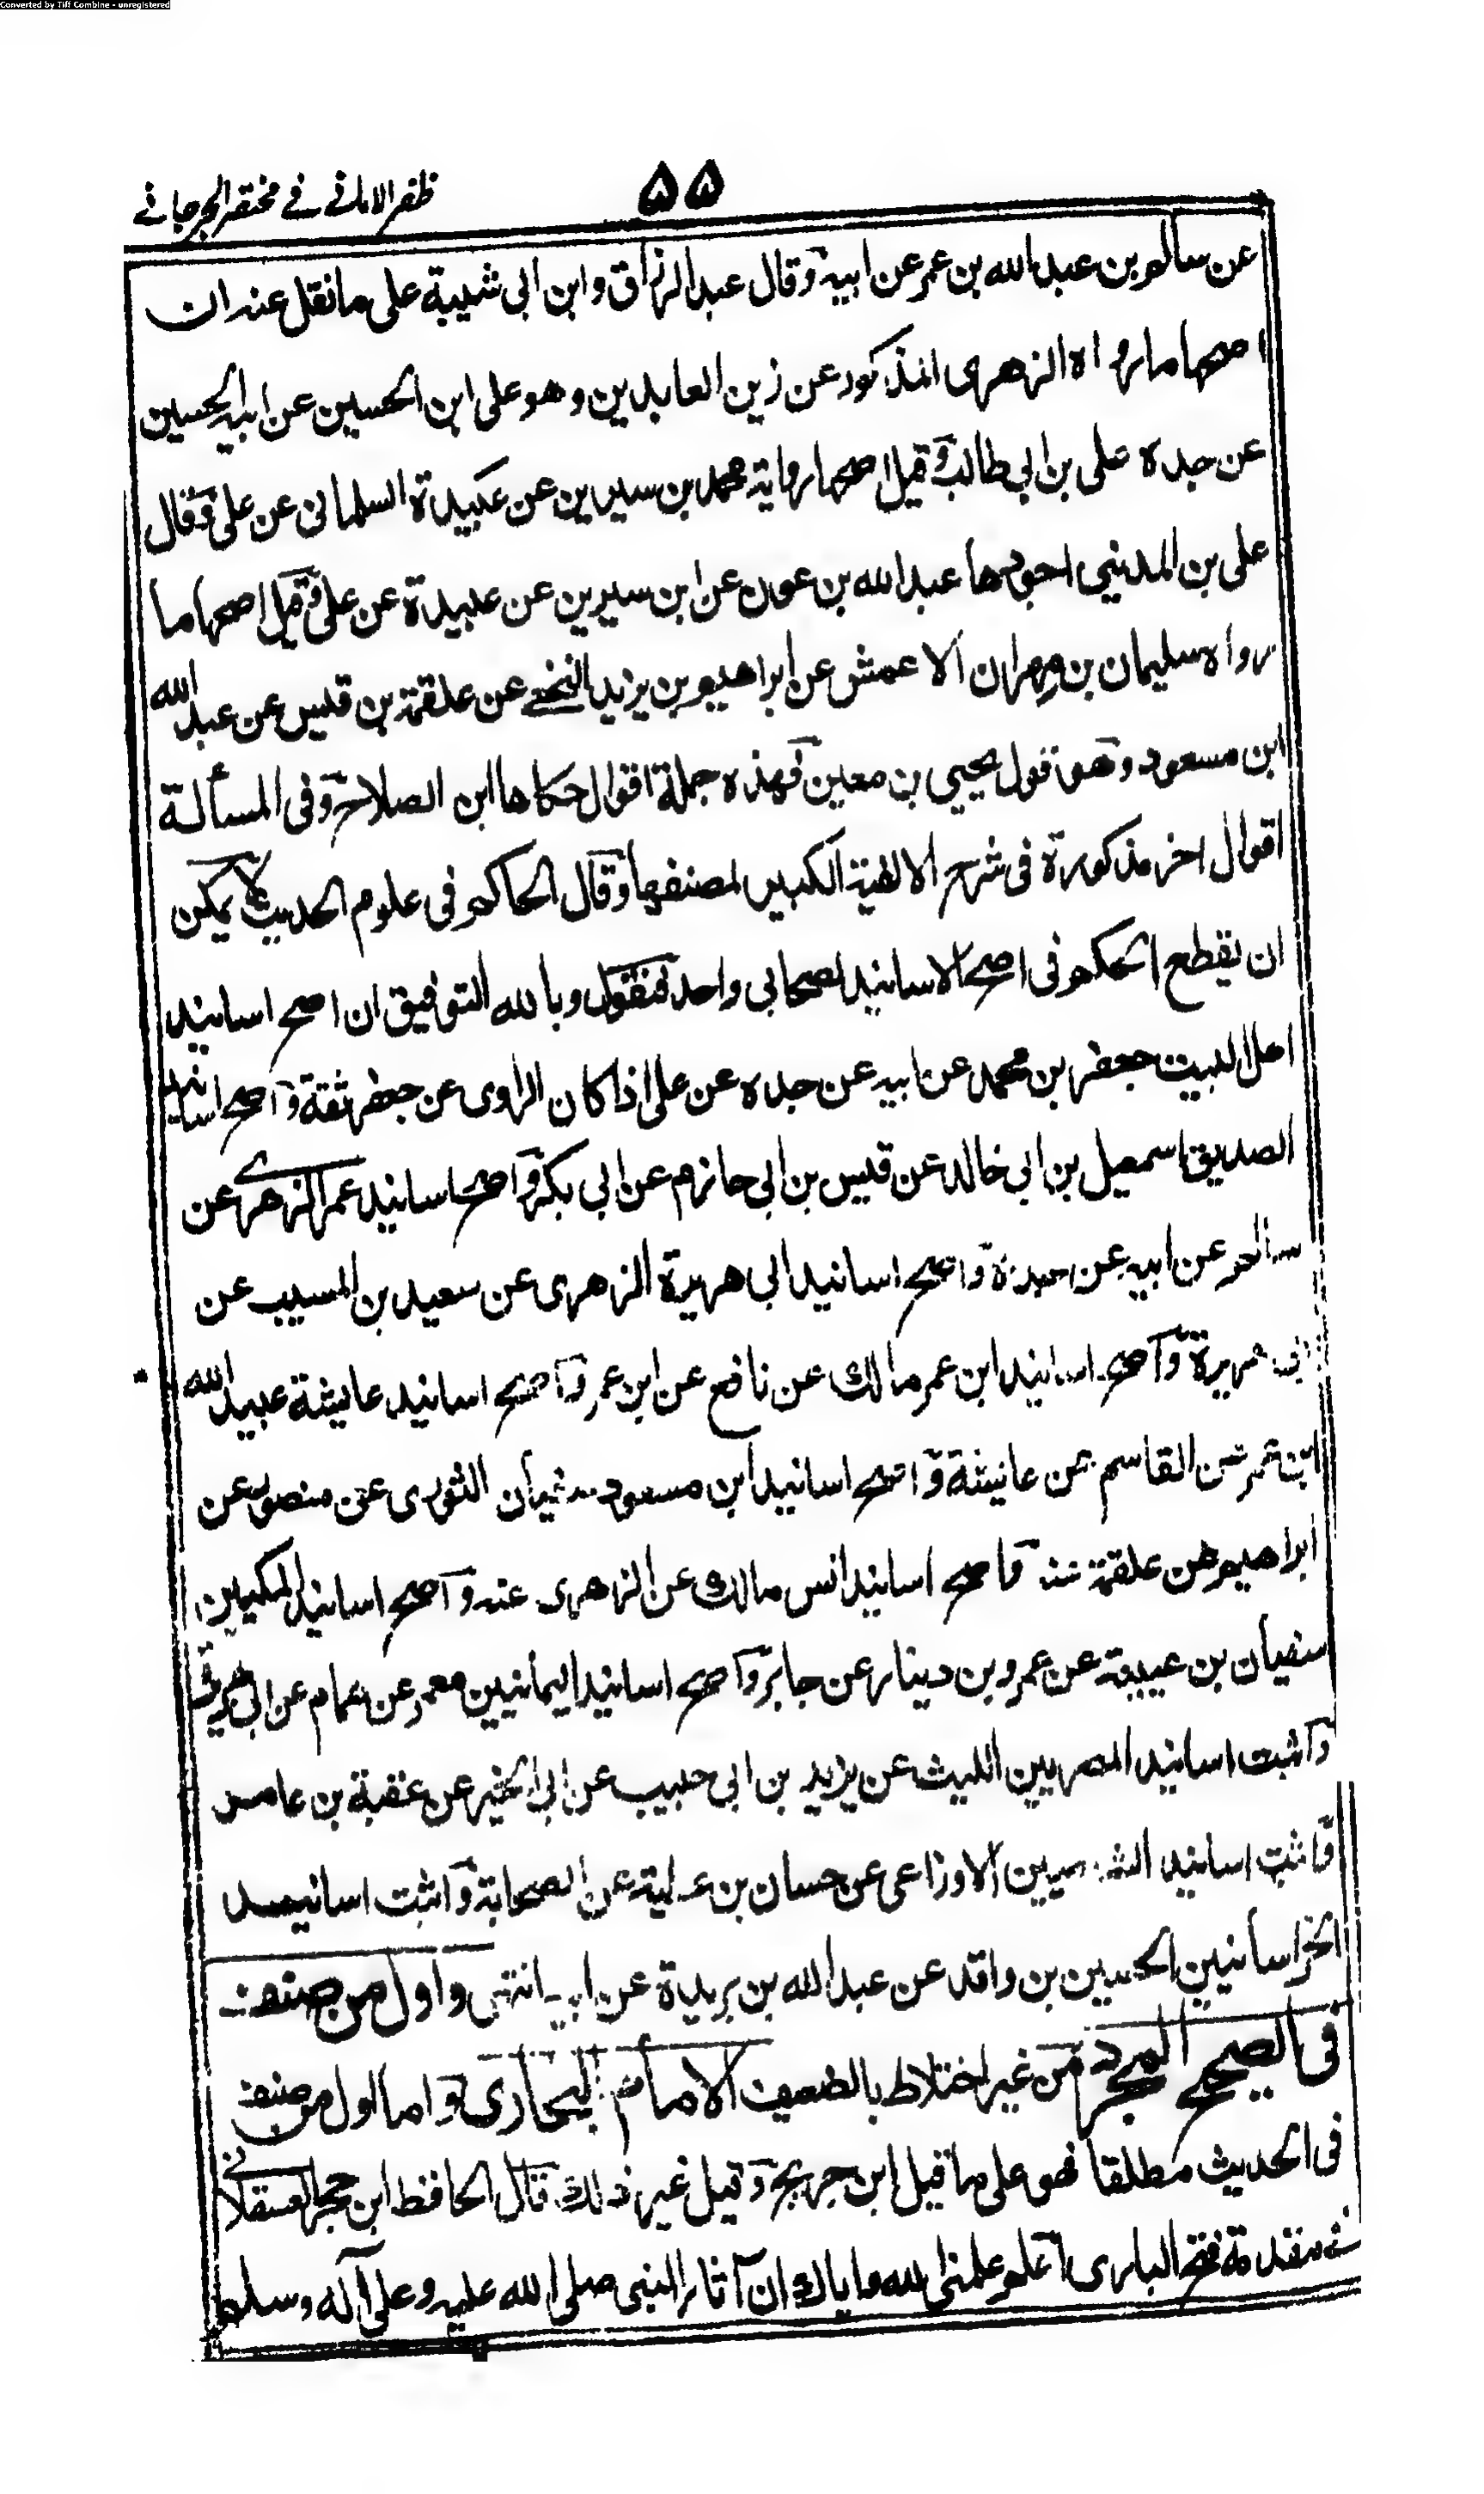 Converted by Tiff Combine - unregistered
ظفر الامانے فے مختصر الجرجانے
۵۵
عن سالم بن عبد الله بن عمر عن ابيه وقال عبد الرزاق وابن ابی شيبة على ما نقل عنه ان
اصحها ما رواه الزهری المذكور عن زين العابدين وهو علی ابن الحسين عن ابيه الحسين
عن جده علی بن ابی طالب وقيل اصحها رواية محمد بن سيرين عن عبيدة السلمانی عن علی وقال
علی بن المدينی اجودها عبد الله بن عون عن ابن سيرين عن عبيدة عن علی وقيل اصحها ما
رواه سليمان بن مهران الاعمش عن ابراهيم بن يزيد النخعے عن علقمة بن قيس عن عبد الله
ابن مسعود وهو قول يحيی بن معين فهذه جملة اقوال حكاها ابن الصلاح وفی المسألة
اقوال اخر مذكورة فی شرح الالفية الكبير لمصنفها وقال الحاكم فی علوم الحديث لا يمكن
ان يقطع الحكم فی اصح الاسانيد لصحابی واحد فنقول وبالله التوفيق ان اصح اسانيد
اهل البيت جعفر بن محمد عن ابيه عن جده عن علی اذا كان الراوی عن جعفر ثقة واصح اسانيد
الصديق اسمعيل بن ابی خالد عن قيس بن ابی حازم عن ابی بكر واصح اسانيد عمر الزهرے عن
سالم عن ابيه عن جده واصح اسانيد ابی هريرة الزهری عن سعيد بن المسيب عن
ابی هريرة واصح اسانيد ابن عمر مالك عن نافع عن ابن عمر واصح اسانيد عايشة عبيد الله
ابن عمر عن القاسم عن عايشة واصح اسانيد ابن مسعود سفيان الثوری عن منصور عن
ابراهيم عن علقمة عنه واصح اسانيد انس مالك عن الزهری عنه واصح اسانيد المكيين
سفيان بن عيينة عن عمرو بن دينار عن جابر واصح اسانيد اليمانيين معمر عن همام عن ابی هريرة
واثبت اسانيد المصريين الليث عن يزيد بن ابی حبيب عن ابی الخير عن عقبة بن عامر
واثبت اسانيد الشاميين الاوزاعی عن حسان بن عطية عن الصحابة واثبت اسانيد
الخراسانيين الحسين بن واقد عن عبد الله بن بريدة عن ابيه انتهی واول من صنف
فی الصحيح المجرد من غير اختلاط بالضعيف الامام البخاری واما اول من صنف
فی الحديث مطلقا فهو علی ما قيل ابن جريج وقيل غير ذلك قال الحافظ ابن حجر العسقلانے
فے مقدمة فتح الباری اعلم علمنی الله واياك ان آثار النبی صلی الله عليه وعلی آله وسلم